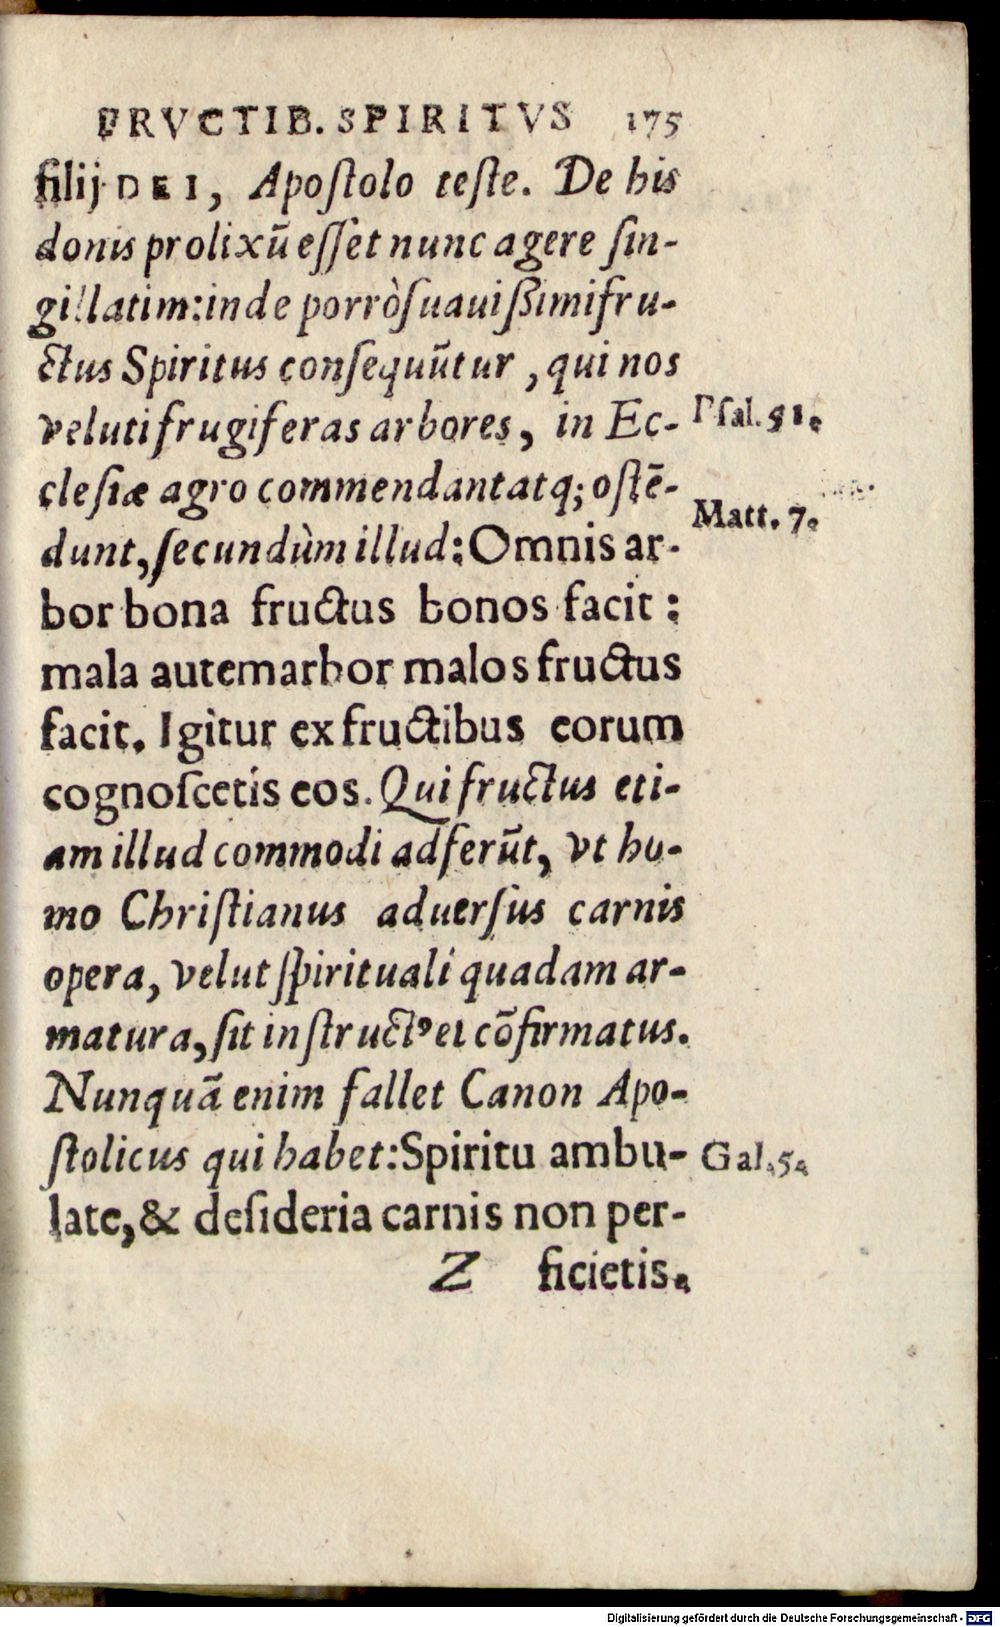 FRVCTIB. SPIRITVS 175
filij DEI, Apoſtolo teſte. De his
donis prolixũ eſſet nunc agere ſin-
gillatim: inde porrò ſuauißimi fru-
ctus Spiritus conſequũtur, qui nos
veluti frugiferas arbores, in Ec-
Pſal. 51.
cleſiæ agro commendant atq; oſtẽ-
Matt. 7.
dunt, ſecundùm illud: Omnis ar-
bor bona fructus bonos facit:
mala autem arbor malos fructus
facit. Igitur ex fructibus eorum
cognoſcetis eos. Qui fructus eti-
am illud commodi adferũt, vt ho-
mo Chriſtianus aduerſus carnis
opera, velut ſpirituali quadam ar-
matura, ſit inſtructꝰ et cõfirmatus.
Nunquã enim fallet Canon Apo-
ſtolicus qui habet: Spiritu ambu-
Gal. 5.
late, & deſideria carnis non per-
Z ficietis.
Digitalisierung gefördert durch die Deutsche Forschungsgemeinschaft - DFG